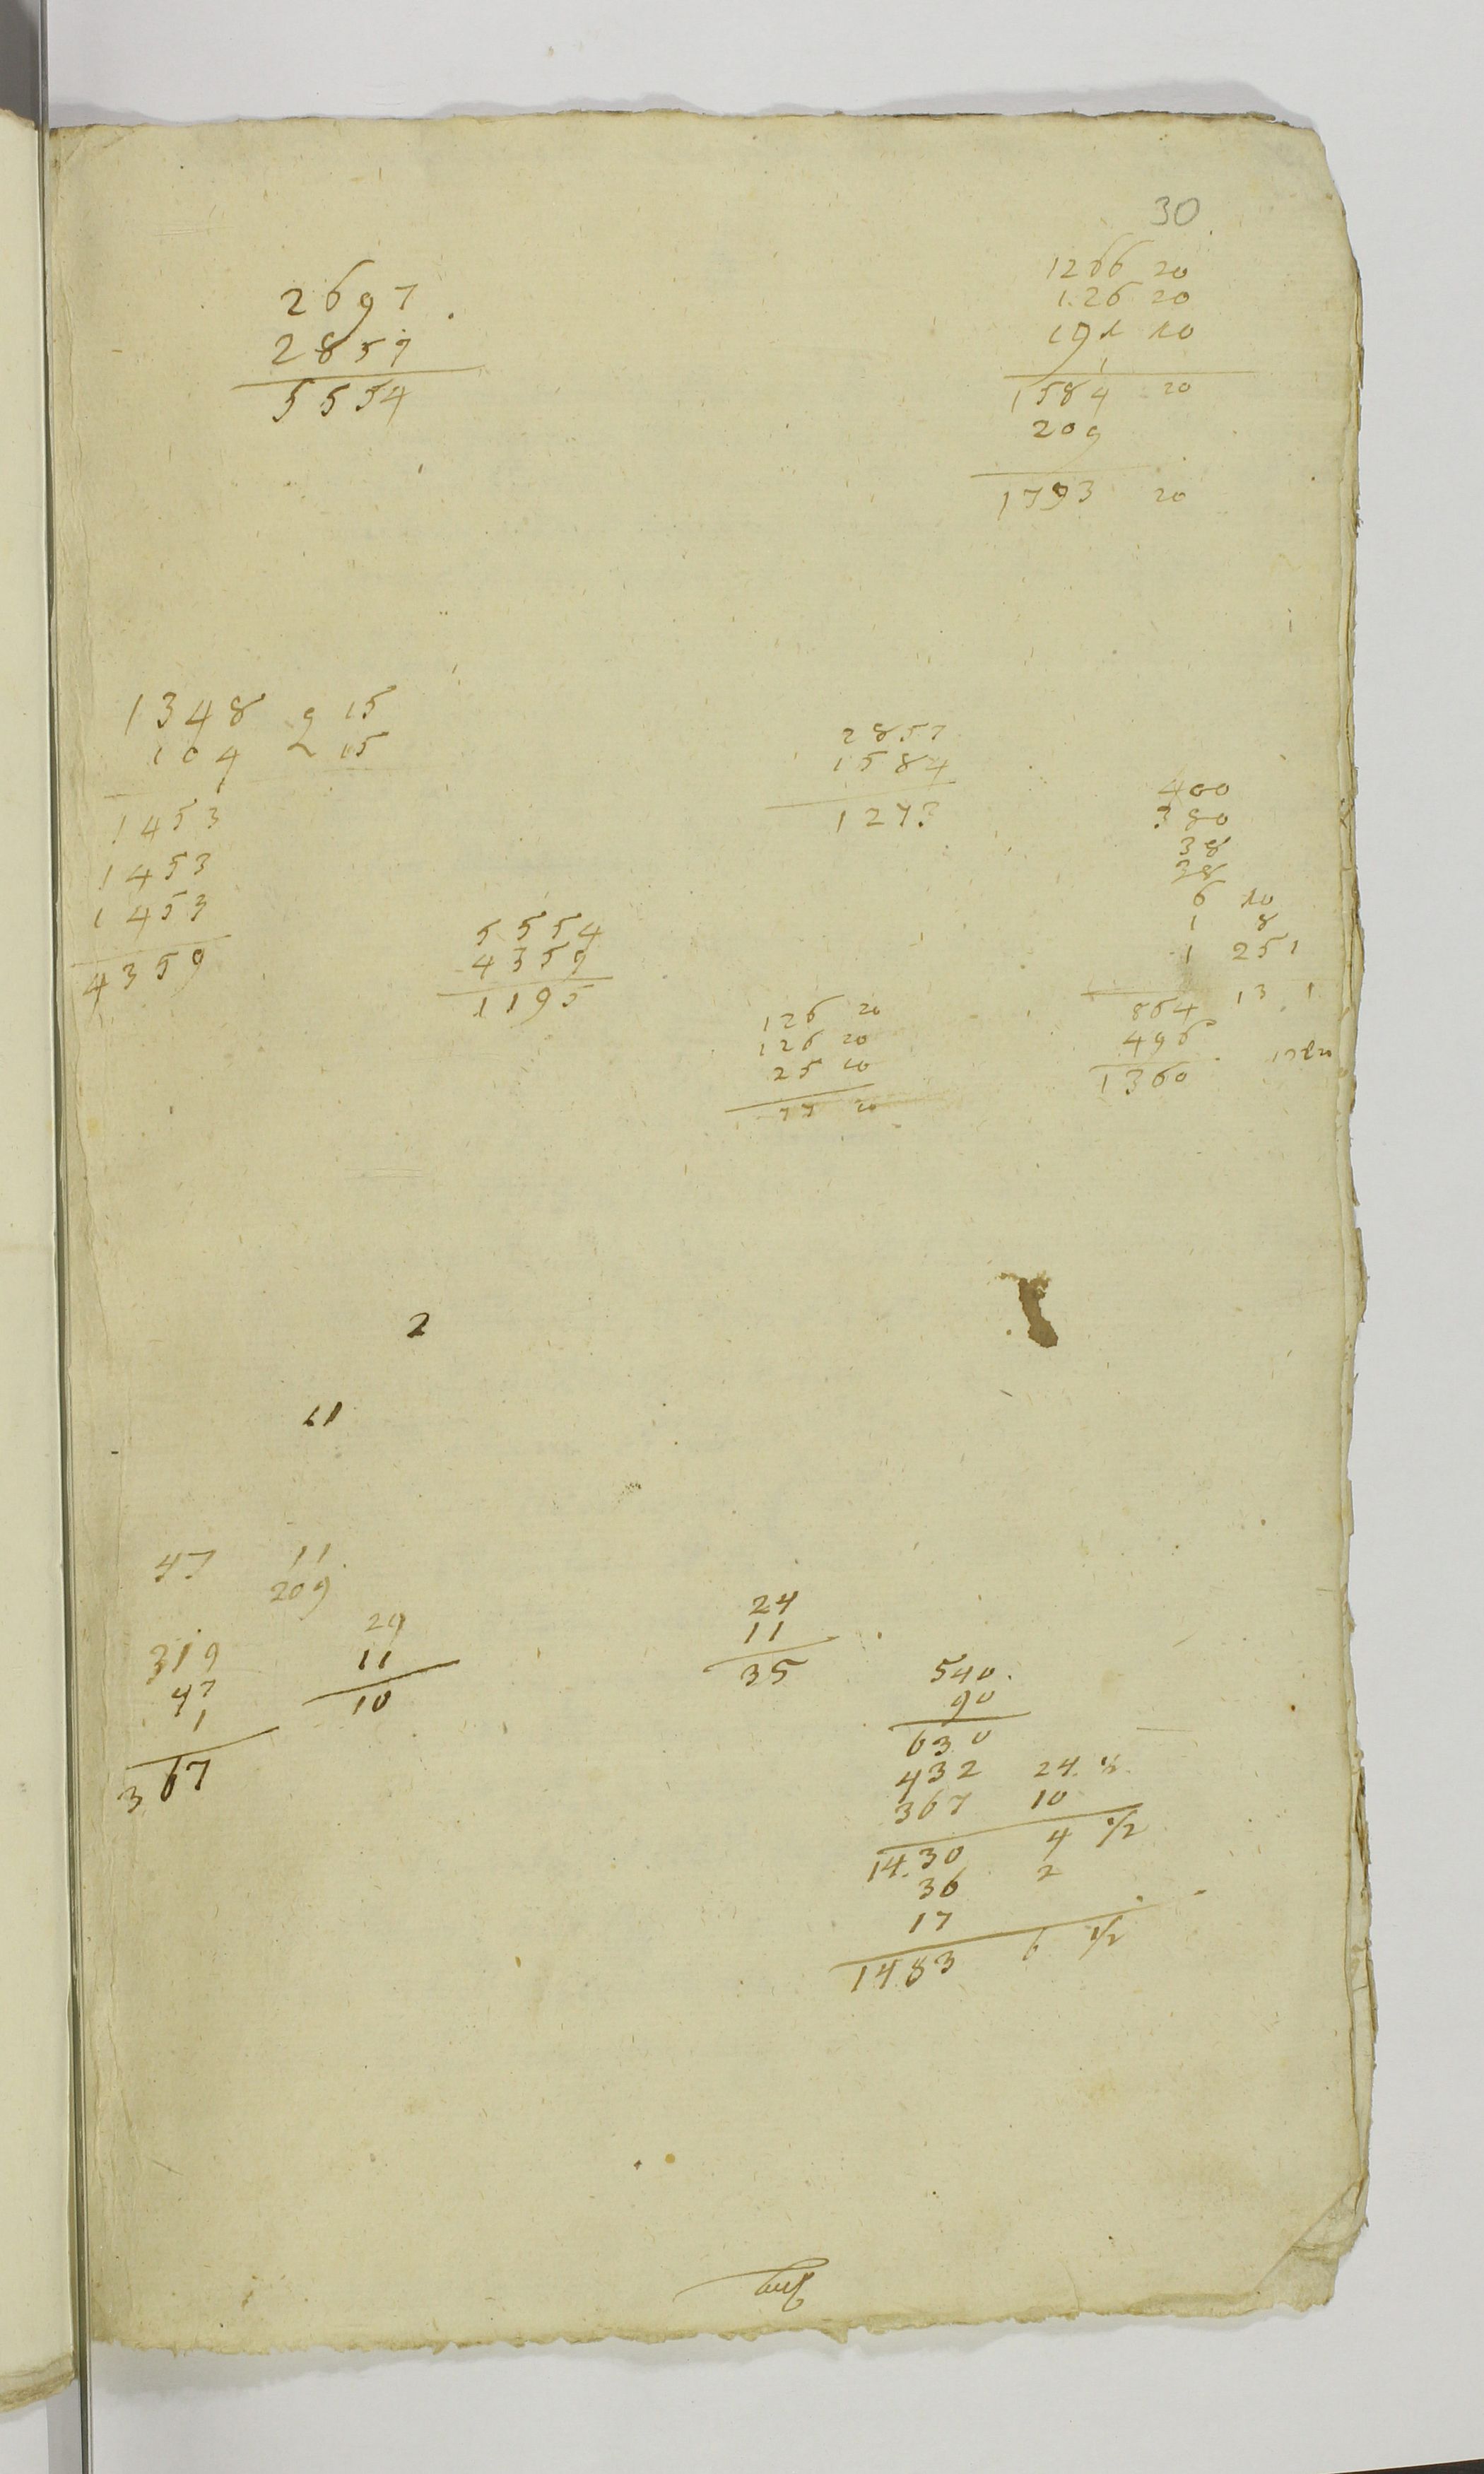 30
2697
2857
5554
1266 20
126 20
191 10
1584 20
209
1793 20
1348 9 15
104 2 15
1453
1453
1453
4359
5554
4359
1195
2857
1584
1273
126 20
126 20
25 10
77 20
400
380
38
38
6 10
1 8
1 251
864 13 1
496
1360
2
11
47 11
209
319
47
1
367
29
11
10
24
11
35
540
90
630
432 24
367 10
1430 4 1/2
36 2
17
1483 6 1/2